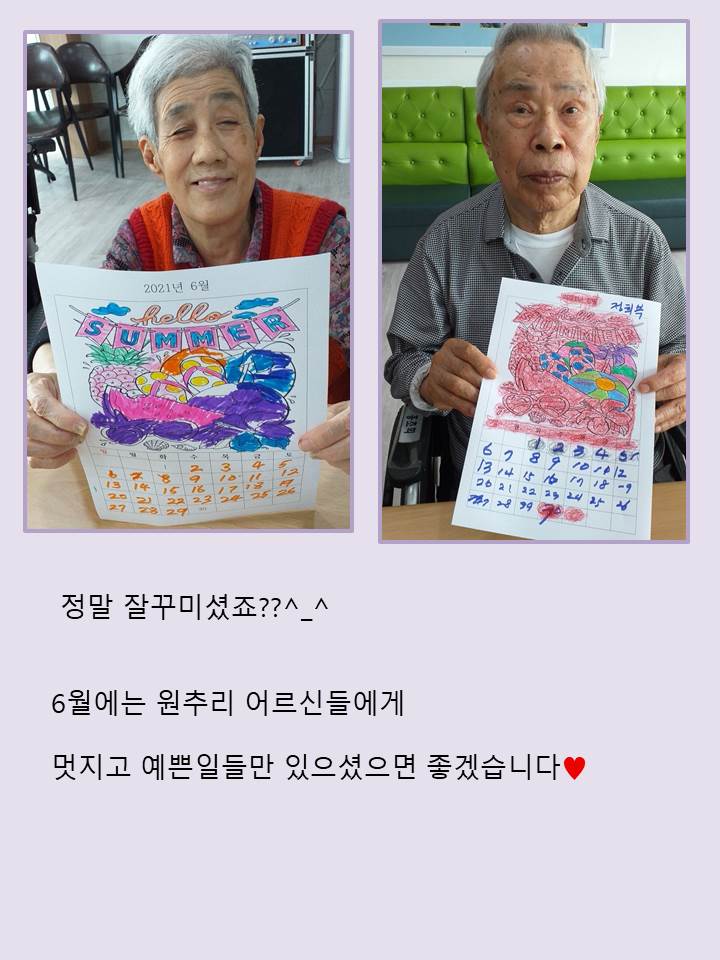 2021년 6월
hello
SUMMER
일 월 화 수 목 금 토
2 3 4 5
6 7 8 9 10 11 12
13 14 15 16 17 18 19
20 21 22 23 24 25 26
27 28 29 30
정희복
1 2 3 4 5
6 7 8 9 10 11 12
13 14 15 16 17 18
20 21 22 23 24 25 26
27 28 29
정말 잘꾸미셨죠??^_^
6월에는 원추리 어르신들에게
멋지고 예쁜일들만 있으셨으면 좋겠습니다♥